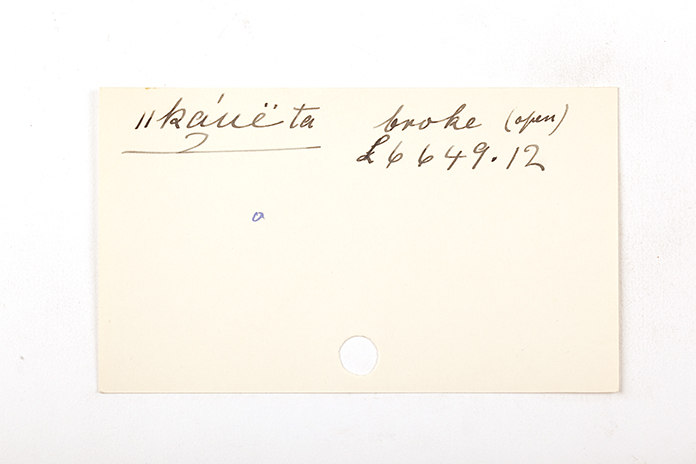 ||ká̡uë ta broke (open)
£6 649.12
a